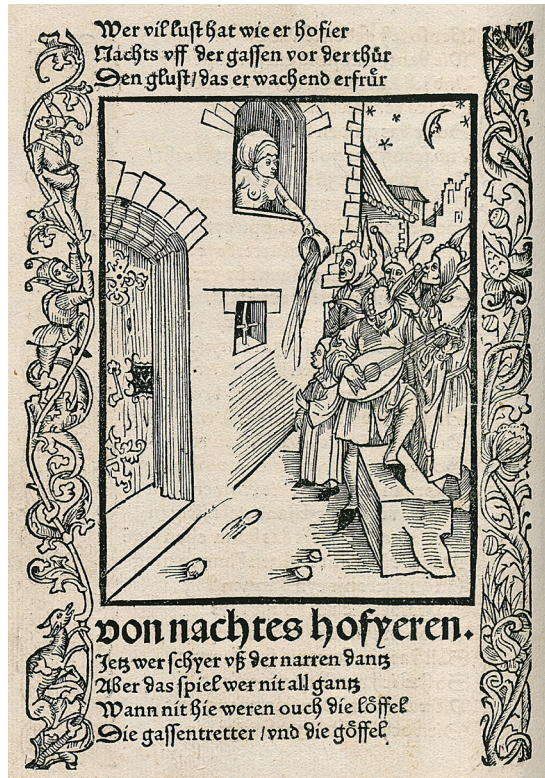 Wer vil lust hat wie er hofier
Nachts vff der gassen vor der thür
Den glust / das er wachend erfrür
von nachtes hofyeren.
Jetz wer schyer vß der narren dantz
Aber das spiel wer nit all gantz
Wann nit hie weren ouch die löffel
Die gassentretter / vnd die göffel